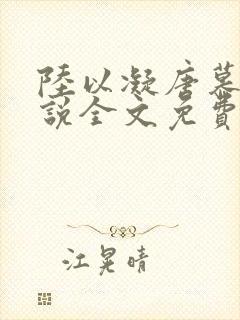 陸以凝唐慕
說全文免費
江晃晴